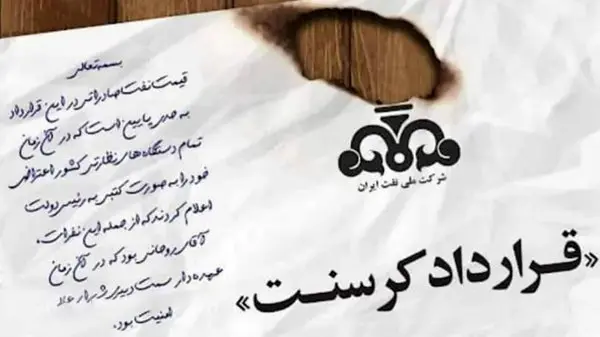 بسمه‌تعالی
قیمت نفت صادراتی در این قرارداد
به حدی پایین است که در آن زمان
تمام دستگاه‌های نظارتی کشور اعتراض
خود را به صورت کتبی به رئیس دولت
اعلام کردند که از جمله این نفرات،
آقای روحانی بود که در آن زمان
عهده‌دار سمت دبیری شورای عالی
امنیت بود.
شرکت ملی نفت ایران
«قرارداد کرسنت»